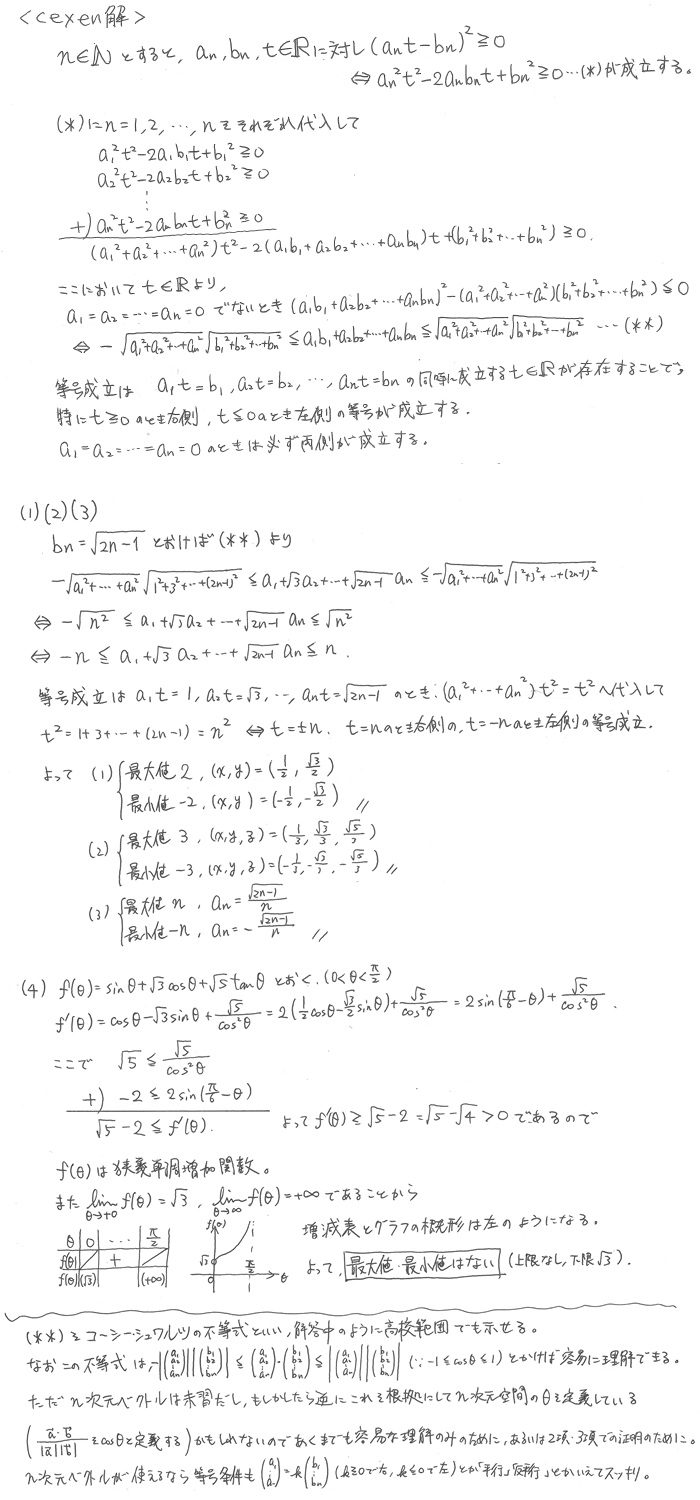 <cexen解>
n∈ℕ とすると, an, bn, t∈ℝに対し (ant-bn)²≧0
⇔ an²t²-2anbnt+bn²≧0…(*)が成立する。
(*)にn=1,2,…,nをそれぞれ代入して
a₁²t²-2a₁b₁t+b₁²≧0
a₂²t²-2a₂b₂t+b₂²≧0
⋮
+) an²t²-2anbnt+bn²≧0
(a₁²+a₂²+…+an²)t²-2(a₁b₁+a₂b₂+…+anbn)t+(b₁²+b₂²+…+bn²)≧0.
ここにおいて t∈ℝより,
a₁=a₂=…=an=0 でないとき (a₁b₁+a₂b₂+…+anbn)²-(a₁²+a₂²+…+an²)(b₁²+b₂²+…+bn²)≦0
⇔ -√(a₁²+a₂²+…+an²)√(b₁²+b₂²+…+bn²)≦a₁b₁+a₂b₂+…+anbn≦√(a₁²+a₂²+…+an²)√(b₁²+b₂²+…+bn²) …(**)
等号成立は a₁t=b₁, a₂t=b₂, …, ant=bn の同時に成立するt∈ℝが存在することで,
特にt≧0のとき右側, t≦0のとき左側の等号が成立する.
a₁=a₂=…=an=0 のときは必ず両側が成立する.
(1)(2)(3)
bn=√(2n-1) とおけば(**)より
-√(a₁²+…+an²)√(1²+3²+…+(2n-1)²)≦a₁+√3a₂+…+√(2n-1)an≦-√(a₁²+…+an²)√(1²+3²+…+(2n-1)²)
⇔ -√n²≦a₁+√3a₂+…+√(2n-1)an≦√n²
⇔ -n≦a₁+√3a₂+…+√(2n-1)an≦n.
等号成立は a₁t=1, a₂t=√3, …, ant=√(2n-1) のとき.(a₁²+…+an²)·t²=t²へ代入して
t²=1+3+…+(2n-1)=n² ⇔ t=±n. t=nのとき右側の, t=-nのとき左側の等号成立.
よって (1) { 最大値 2, (x,y)=(1/2, √3/2)
最小値 -2, (x,y)=(-1/2, -√3/2) //
(2) { 最大値 3, (x,y,z)=(1/3, √3/3, √5/3)
最小値 -3, (x,y,z)=(-1/3, -√3/3, -√5/3) //
(3) { 最大値 n, an=√(2n-1)/n
最小値 -n, an=-√(2n-1)/n //
(4) f(θ)=sinθ+√3cosθ+√5tanθ とおく.(0<θ<π/2)
f'(θ)=cosθ-√3sinθ+√5/cos²θ=2(1/2cosθ-√3/2sinθ)+√5/cos²θ=2sin(π/6-θ)+√5/cos²θ.
ここで √5≦√5/cos²θ
+) -2≦2sin(π/6-θ)
√5-2≦f'(θ). よってf'(θ)≧√5-2=√5-√4>0であるので
f(θ)は狭義単調増加関数。
また lim θ→+0 f(θ)=√3, lim θ→∞ f(θ)=+∞であることから
増減表とグラフの概形は左のようになる。
θ 0 … π/2
f'(θ) +
f(θ) (√3) (+∞)
f(θ) √3 0 π/2 θ
よって, 最大値・最小値はない (上限なし,下限√3).
(**)をコーシーシュワルツの不等式といい,解答中のように高校範囲でも示せる。
なおこの不等式は, -|(a₁ a₂ ⋮ an)||(b₁ b₂ ⋮ bn)|≦(a₁ a₂ ⋮ an)·(b₁ b₂ ⋮ bn)≦|(a₁ a₂ ⋮ an)||(b₁ b₂ ⋮ bn)| (∵-1≦cosθ≦1) とかけば容易に理解できる。
ただn次元ベクトルは未習だし,もしかしたら逆にこれを根拠にしてn次元空間のθを定義している
(a⃗·b⃗/|a⃗||b⃗| をcosθと定義する)かもしれないのであくまでも容易な理解のみのために,あるいは2項・3項での証明のために。
n次元ベクトルが使えるなら等号条件も (a₁ ⋮ an)=k(b₁ ⋮ bn) (k≧0で右, k≦0で左)とか「平行」「反平行」とかいえてスッキリ。